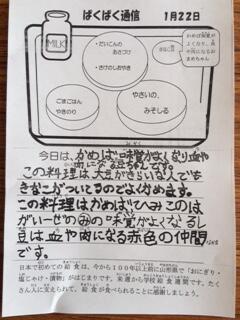 ぱくぱく通信　1月22日
MILK
・だいこんの
あさづけ
・さけのしおやき
きなこ
かめば味覚が
よくなり、血
や肉になる
ごまごはん
やきのり
やさいの、
みそしる
今日は、かめば味覚がよくなり血や
肉になる
この料理は大豆がきらいな人でも
きなこがついてるのでよくかめます。
この料理はかめば"ひみこのは
がいーぜ"のみの味覚がよくなるし
豆は血や肉になる赤色の仲間
です。
日本で初めての給食は、今から100年以上前に山形県で「おにぎり・
塩じゃけ・漬物」がはじまりです。来週から学校給食週間です。たく
さん人に支えられて、給食が食べられることに感謝しましょう。